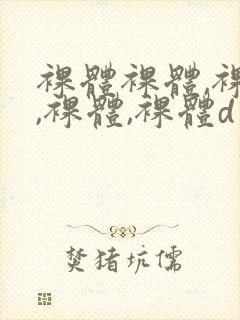 裸體裸體,裸
,裸體,裸體d
焚猪坑儒